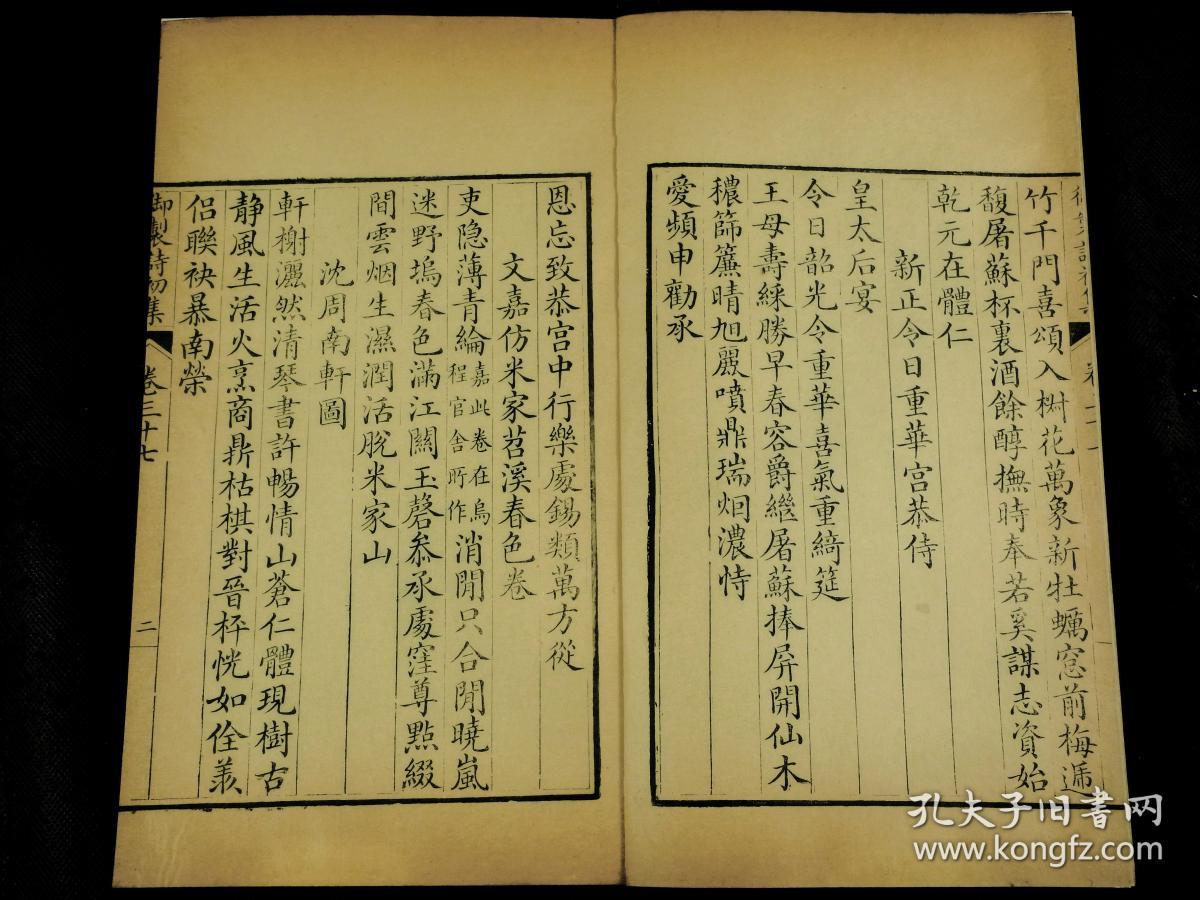 竹千門喜頌入樹花萬象新牡蠣窓前梅遞
馥屠蘇杯裏酒餘醇撫時奉若奚謀志資始
乾元在體仁
新正令日重華宫恭侍
皇太后宴
令日韶光令重華喜氣重綺筵
王母壽綵勝早春容爵繼屠蘇捧屏開仙木
穠篩簾晴旭麗噴鼎瑞烟濃恃
愛頻申勸承
恩忘致恭宫中行樂處錫類萬方從
文嘉仿米家苕溪春色卷
吏隐薄青綸嘉此卷在烏程官舍所作消閒只合閒曉嵐
迷野塢春色滿江關玉磬叅承處窪尊點綴
間雲烟生濕潤活脱米家山
沈周南軒圖
軒榭灑然清琴書許暢情山蒼仁體現樹古
静風生活火烹商鼎枯棋對晉枰恍如佺羨
侣聯袂暴南榮
御製詩初集
卷三十七
二
孔夫子旧书网
www.kongfz.com